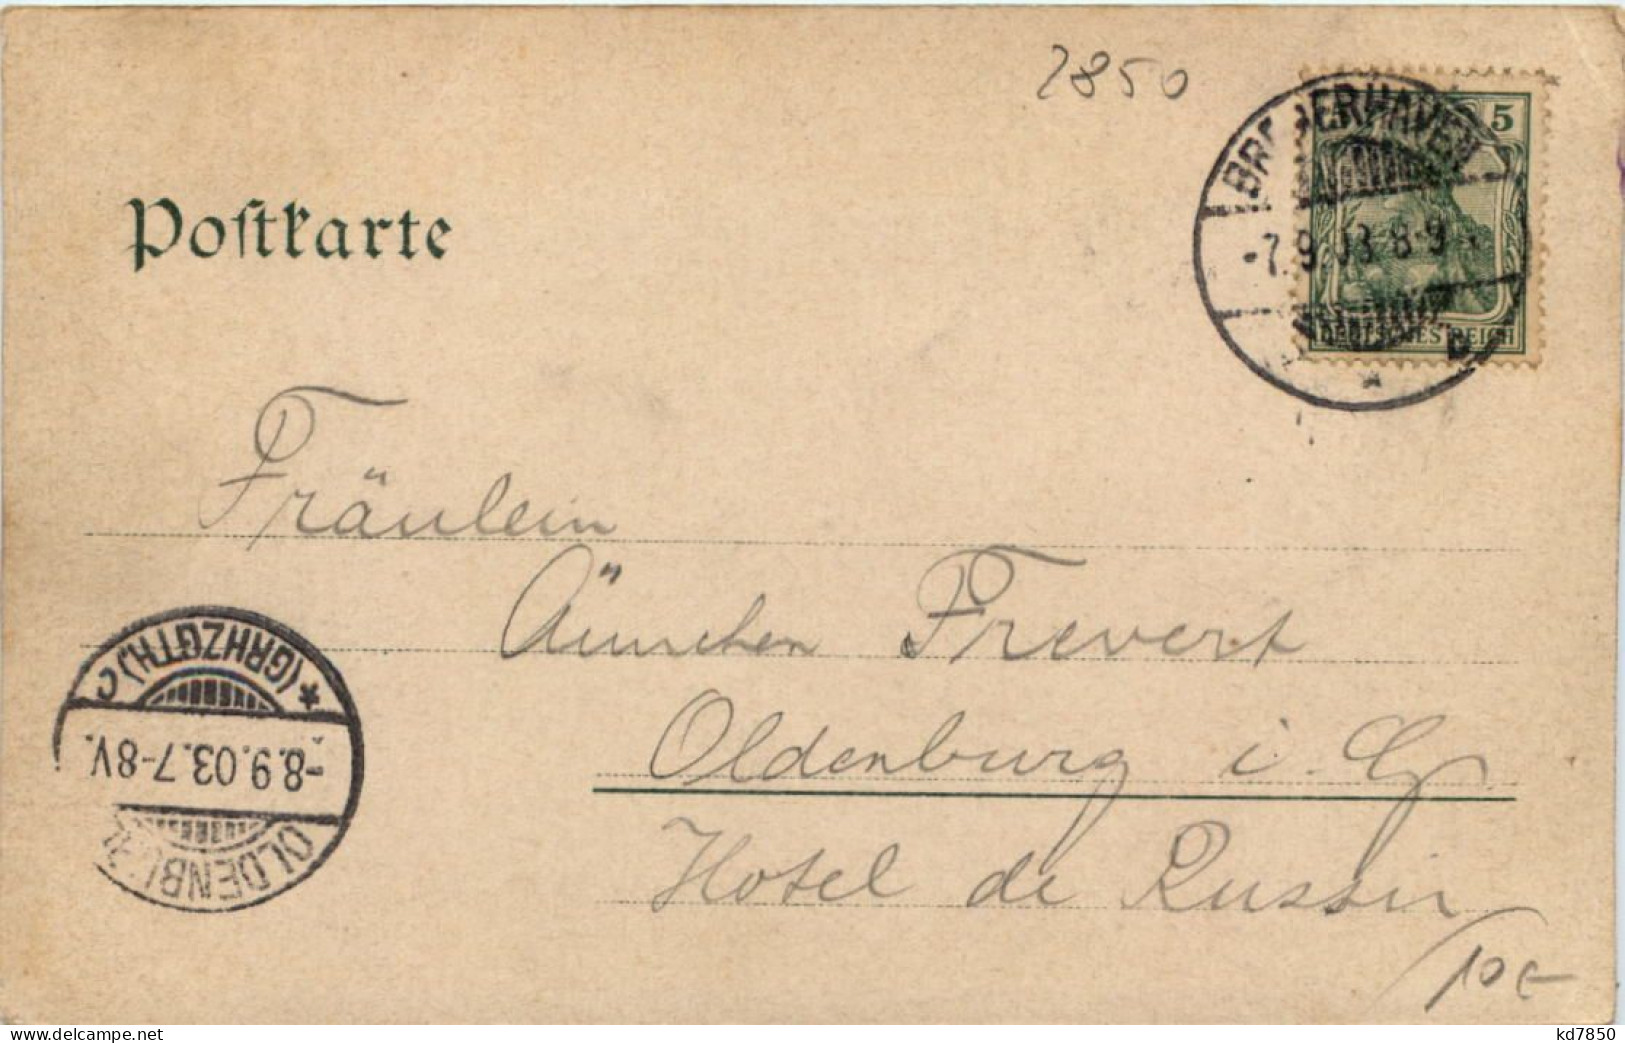 2850
5
BREMERHAVEN
-7.9.03 8-9
b
DEUTSCHES REICH
Poſtkarte
Fräulein
Ännchen Frevert
Oldenburg i. G
Hotel de Russie
*(GRHZGTH.) C
-8.9.03.7-8V.
OLDENBURG
10 €
www.delcampe.net
kd7850